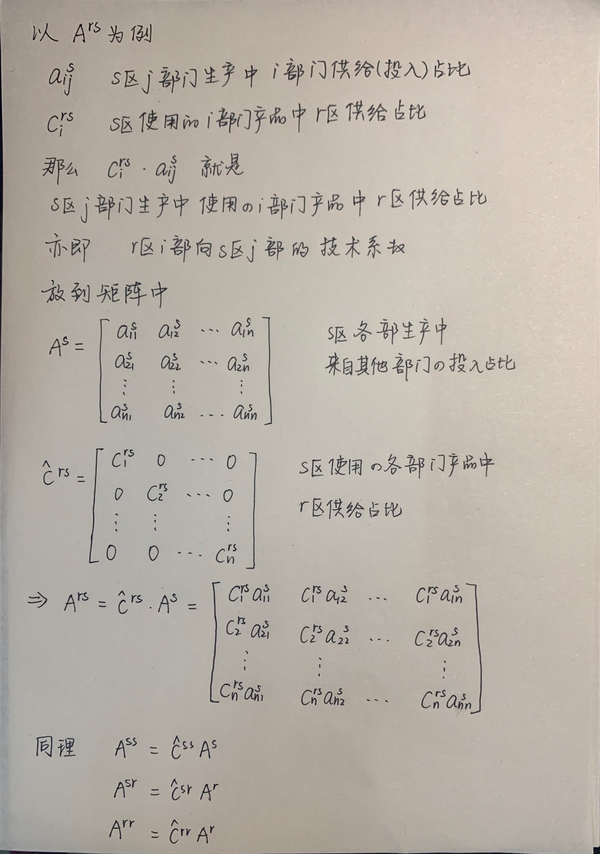 以 A^rs 为例
a_ij^s s区j部门生产中 i部门供给(投入)占比
C_i^rs s区使用的i部门产品中r区供给占比
那么 C_i^rs · a_ij^s 就是
s区j部门生产中使用の i部门产品中r区供给占比
亦即 r区i部向s区j部的技术系数
放到矩阵中
A^s = [ a_11^s a_12^s ... a_1n^s
a_21^s a_22^s ... a_2n^s
⋮ ⋮ ⋮
a_n1^s a_n2^s ... a_nn^s ]
s区各部生产中
来自其他部门の投入占比
Ĉ^rs = [ C_1^rs 0 ... 0
0 C_2^rs ... 0
⋮ ⋮ ⋮
0 0 ... C_n^rs ]
s区使用の各部门产品中
r区供给占比
⇒ A^rs = Ĉ^rs · A^s = [ C_1^rs a_11^s C_1^rs a_12^s ... C_1^rs a_1n^s
C_2^rs a_21^s C_2^rs a_22^s ... C_2^rs a_2n^s
⋮ ⋮ ⋮
C_n^rs a_n1^s C_n^rs a_n2^s ... C_n^rs a_nn^s ]
同理 A^ss = Ĉ^ss A^s
A^sr = Ĉ^sr A^r
A^rr = Ĉ^rr A^r